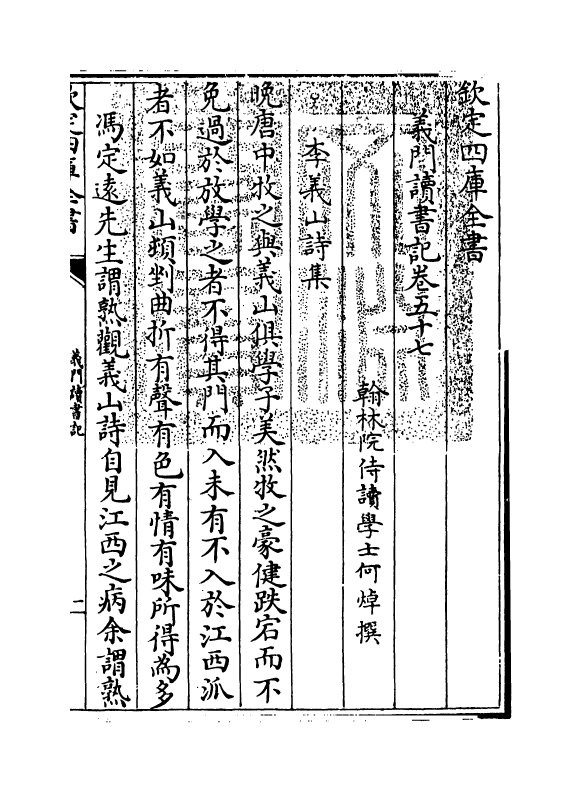 欽定四庫全書
義門讀書記卷五十七
翰林院侍讀學士何焯撰
李義山詩集
晚唐中牧之與義山俱學子美然牧之豪健跌宕而不
免過於放學之者不得其門而入未有不入於江西派
者不如義山頓剉曲折有聲有色有情有味所得為多
馮定遠先生謂熟觀義山詩自見江西之病余謂熟
欽定四庫全書
義門讀書記